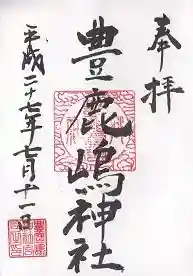 奉拝
豊鹿嶋神社
平成二十七年七月十一日